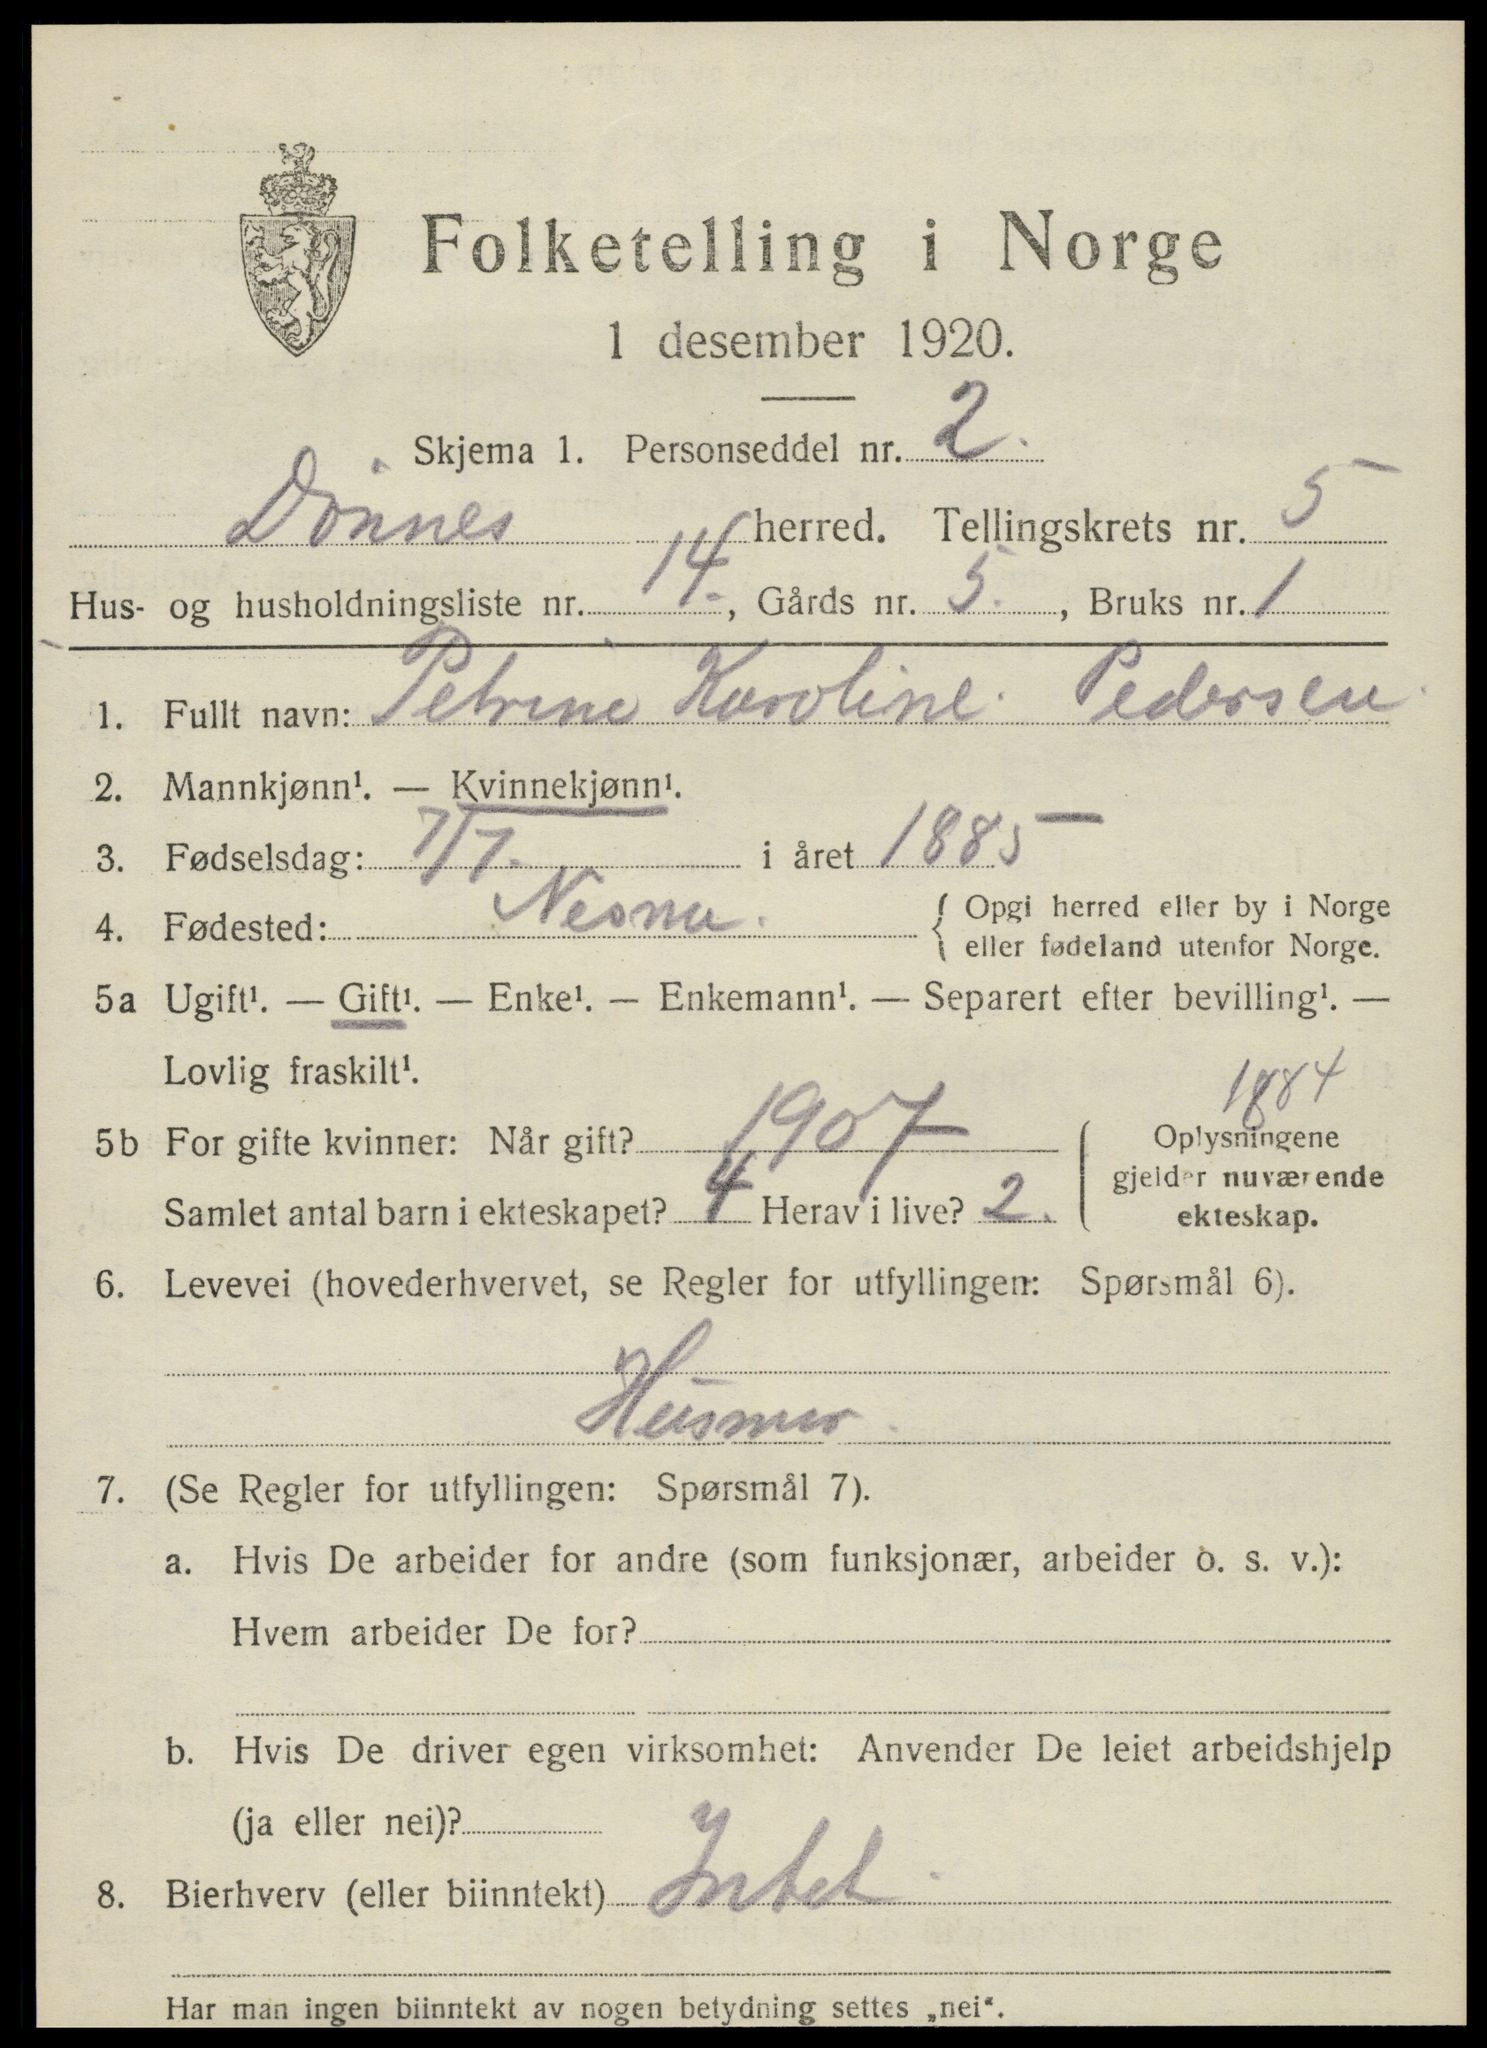 Folketelling i Norge
1 desember 1920.
Skjema 1. Personseddel nr. 2.
Dönnes herred. Tellingskrets nr. 5
Hus- og husholdningsliste nr. 14., Gårds nr. 5., Bruks nr. 1
1. Fullt navn: Petrine Karoline Pedersen
2. Mannkjønn¹. — Kvinnekjønn¹.
3. Fødselsdag: 7/7. i året 1885
4. Fødested: Nesna. { Opgi herred eller by i Norge
eller fødeland utenfor Norge.
5a Ugift¹. — Gift¹. — Enke¹. — Enkemann¹. — Separert efter bevilling¹. —
Lovlig fraskilt¹.
1884
5b For gifte kvinner: Når gift? 1907 Oplysningene
gjelder nuværende
Samlet antal barn i ekteskapet? 4 Herav i live? 2. ekteskap.
6. Levevei (hovederhvervet, se Regler for utfyllingen: Spørsmål 6).
Husmor.
7. (Se Regler for utfyllingen: Spørsmål 7).
a. Hvis De arbeider for andre (som funksjonær, arbeider o. s. v.):
Hvem arbeider De for?
b. Hvis De driver egen virksomhet: Anvender De leiet arbeidshjelp
(ja eller nei)?
8. Bierhverv (eller biinntekt) Intet
Har man ingen biinntekt av nogen betydning settes „nei“.